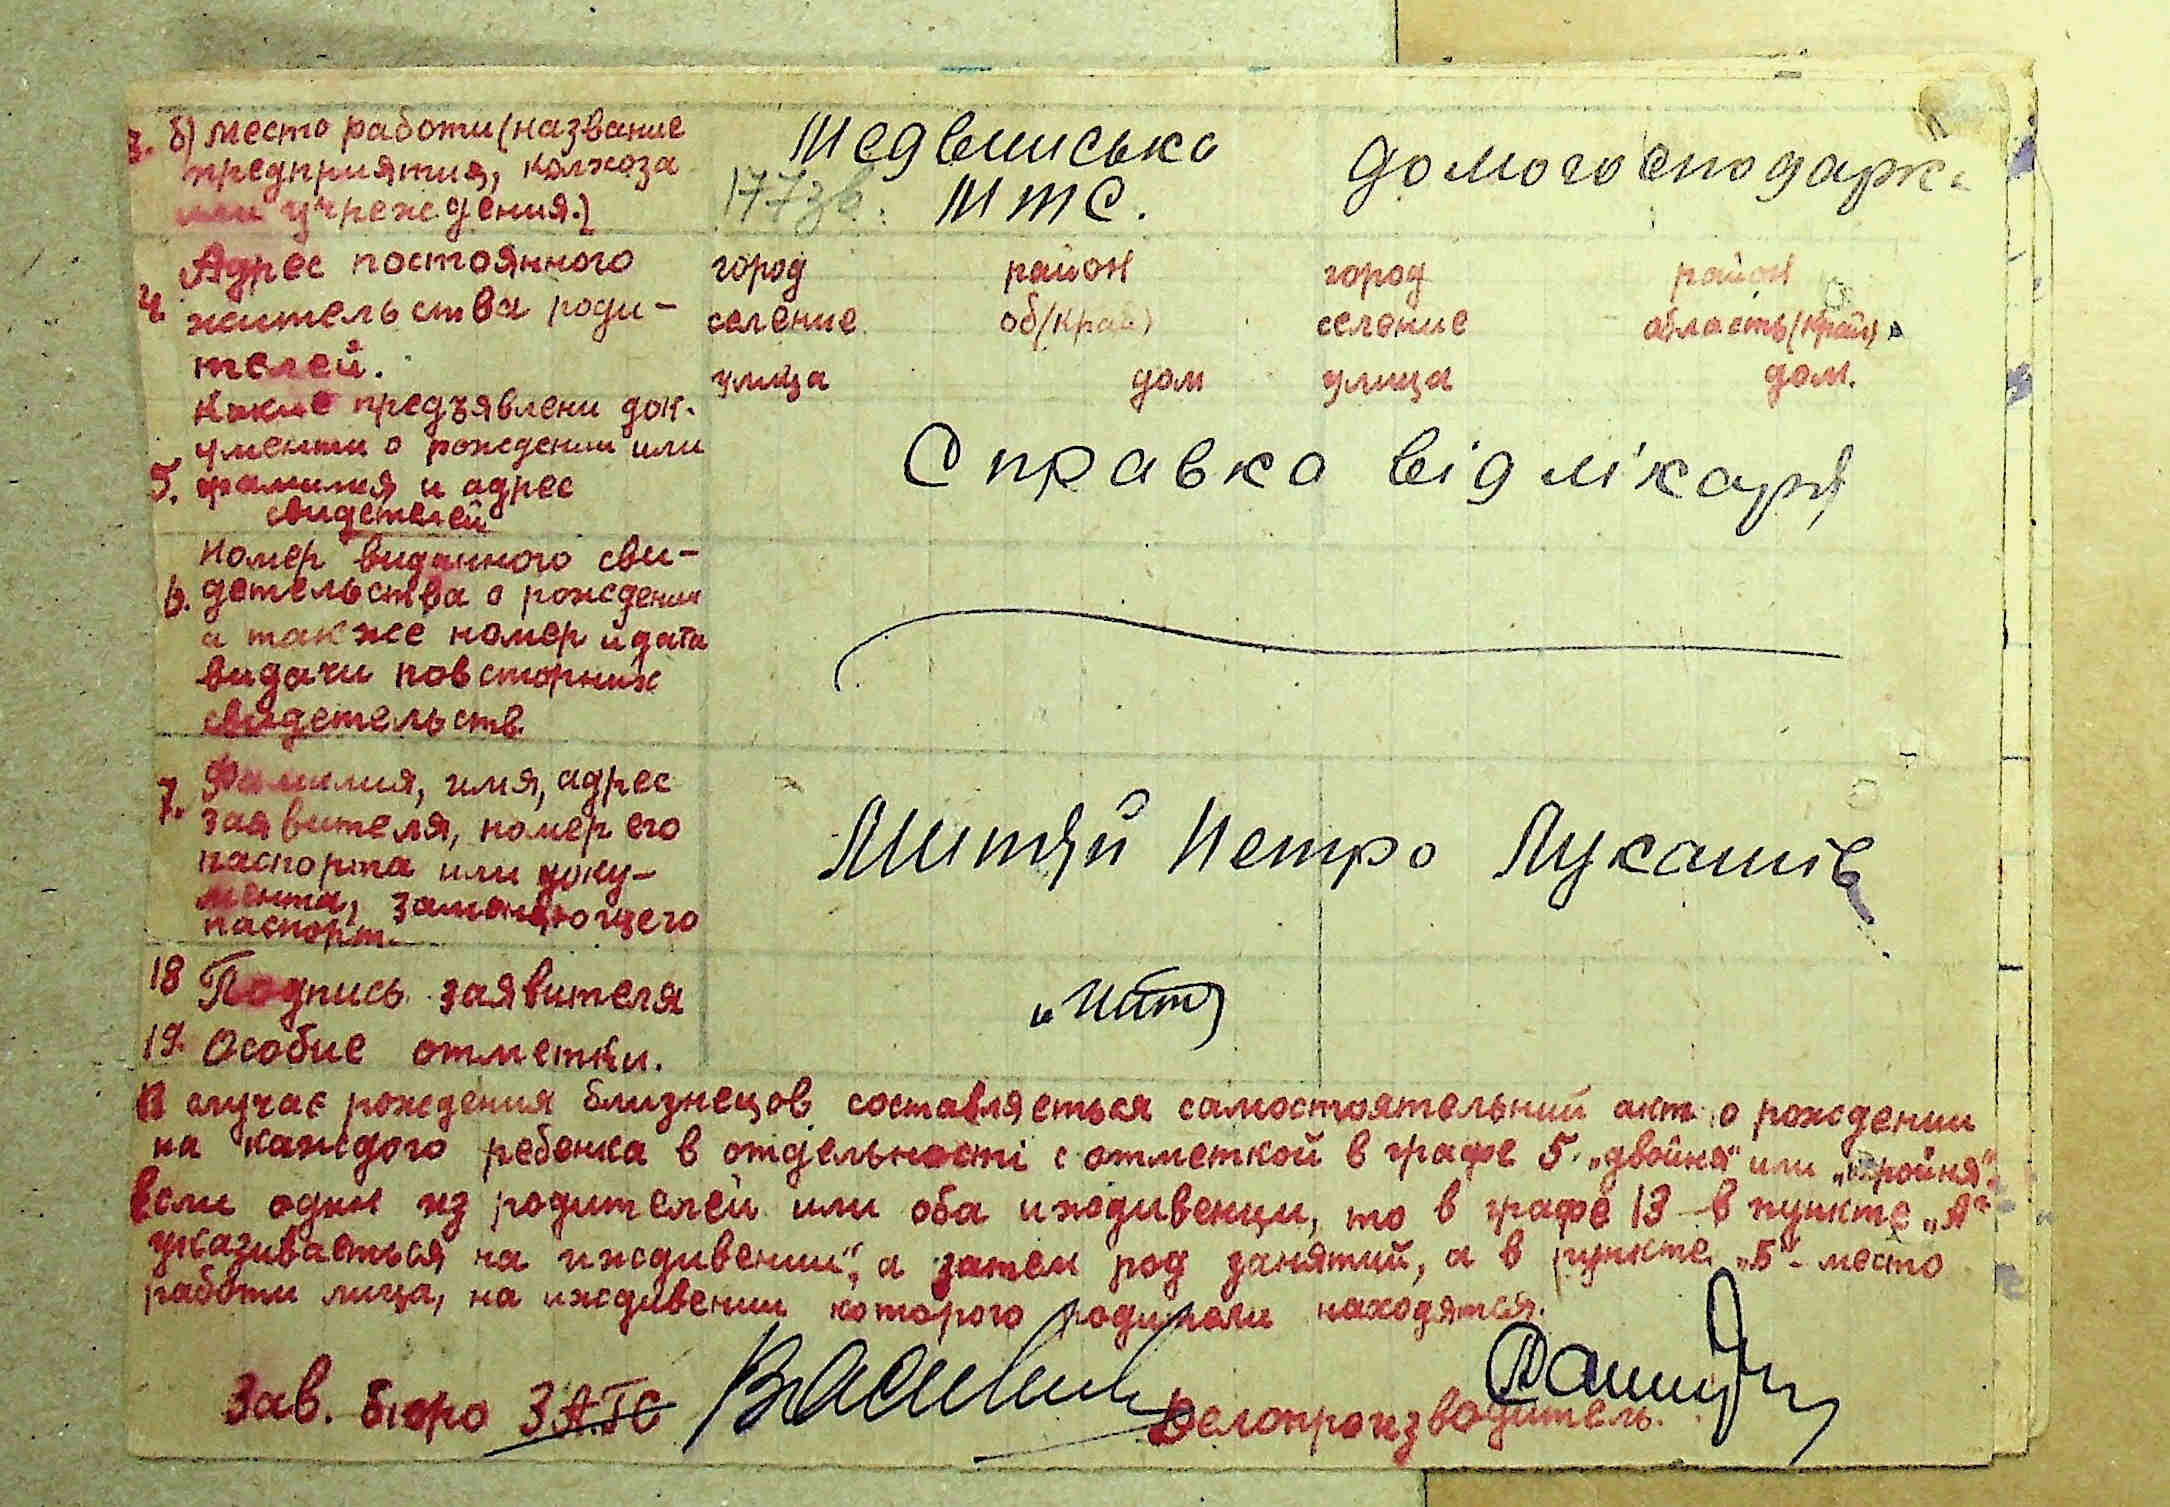 3. б) место работи (название
предприятия, колхоза
или учреждения.)
Медвинська
177зв. МТС.
домогосподарк
4. Адрес постоянного
жительства роди-
телей.
город район город район
селение об(край) селение область(край)
улица дом улица дом.
5. Какие предъявлени док-
ументи о рождении или
фамилия и адрес
свидетелей
Справка від лікаря
6. Номер виданного сви-
детельства о рождении
а также номер и дата
видачи повсторних
свидетельств.
7. Фамилия, имя, адрес
заявителя, номер его
паспорта или доку-
мента, заменяющего
паспорт.
Митяй Петро Лукашів
18 Подпись заявителя
19. Особие отметки.
В случае рождения близнецов составляеться самостоятельний акт о рождении
на каждого ребенка в отдельності с отметкой в графе 5 „двойня" или „тройня".
Если один из родителей или оба иждивенци, то в графе 13 - в пункте „А"
указиваеться на иждивении", а затем род занятий, а в пункте „Б" - место
работи лица, на иждивении которого родители находятся.
Зав. Бюро ЗАГС
Делопроизводитель.